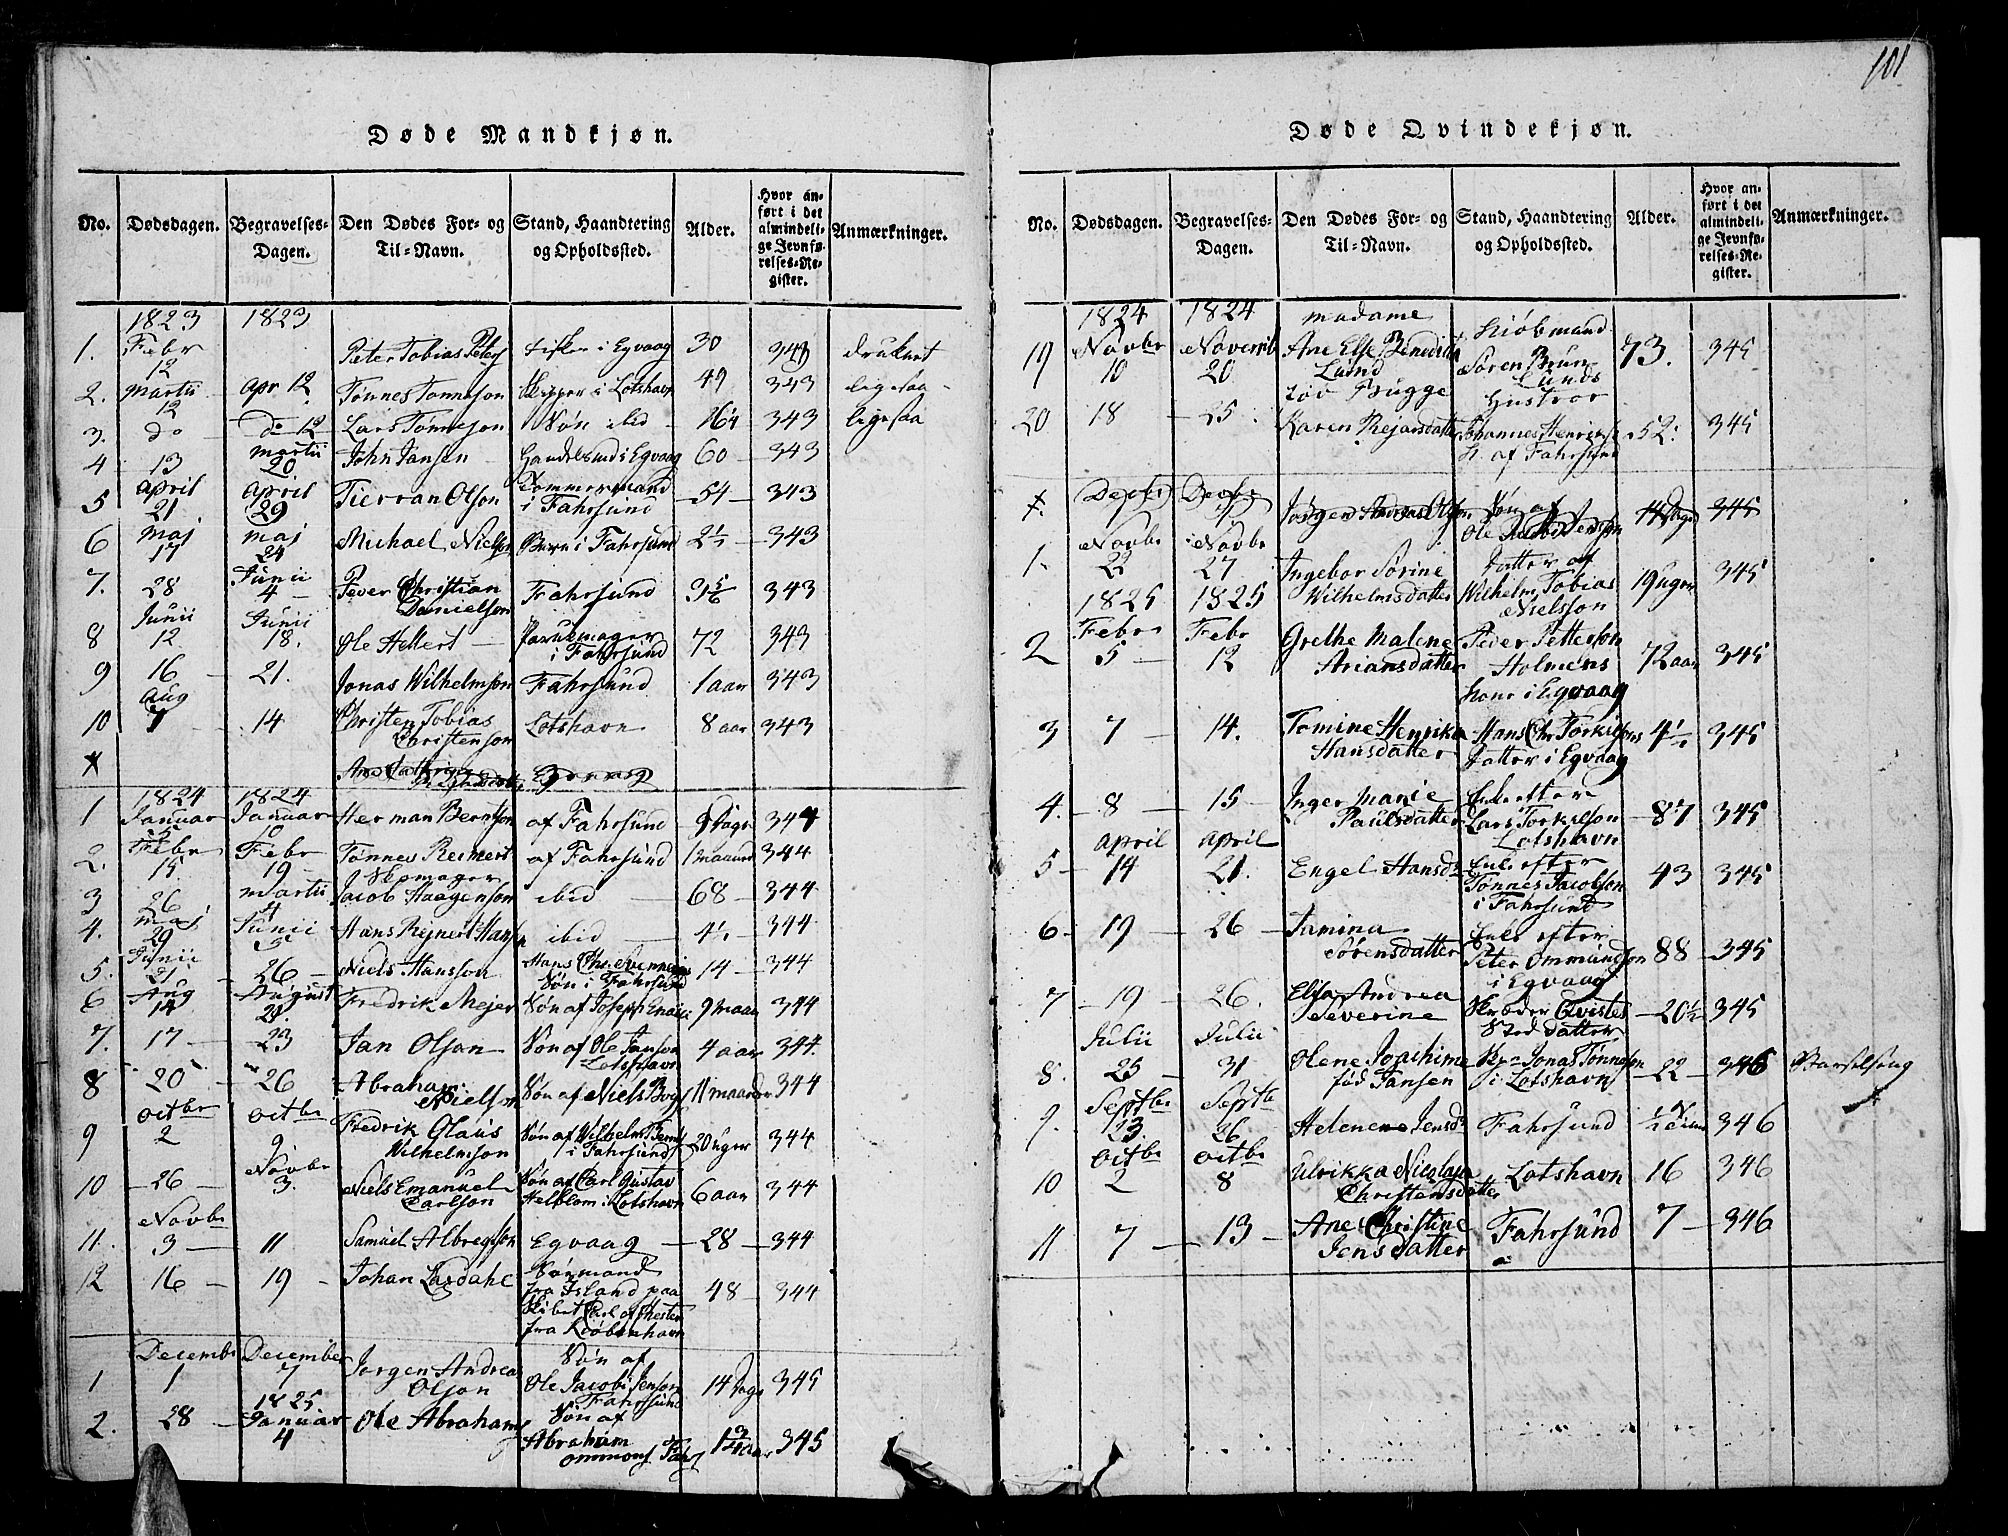 101
Døde Mandkjøn.
No. Dødsdagen. Begravelses-Dagen. Den Dødes For- og Til-Navn. Stand, Haandtering og Opholdssted. Alder. Hvor anført i det almindelige Jevnførelses-Register. Anmærkninger.
1823 1823
1. Febr 12 Peter Tobias Peters fisker i Egvaag 30 343 druknet
2. Martii 12 Apr 12 Tønnes Tønneson Skipper i Lotshavn 49 343 ligesaa
3. do do 12 Lars Tønneson Søn ibid 16¼ 343 ligesaa
4 13 Martii 20 John Jansen Handelsmd i Egvaag 60 343
5 April 21 April 29 Tierran Olson Tømmermand i Fahrsund 54 343
6 Maj 17 Maj 24 Michael Nielson Barn i Fahrsund 2½ 343
7. 28 Junii 4 Peder Christian Danielson Fahrsund 3 5/6 343
8 Junii 12 Junii 18. Ole Hellert Paruqmager i Fahrsund 72 343
9 16 21. Jonas Wilhelmson Fahrsund 1 aar 343
10 Aug 7 14 Christen Tobias Christenson Lotshavn 8 aar 343
Ane Egvaag
1824 1824
1 Januar 5 Januar 10 Herman Berntson af Fahrsund 9 Dage 344
2. Febr 15 Febr 19 Tønnes Reinert af Fahrsund 1 maaned 344
3 26 Martii 4 Skomager Jacob Haagenson ibid 68 344
4. Maj 29 Junii 5 Hans Reinert Hansen ibid 4½ 344
5. Junii 21 26 Niels Hansson Hans Chr. Svennings Søn i Fahrsund 14 344
6 Aug 14 August 21. Fredrik Mejer Søn af Joseph 9 maan 344
7. 17 23 Jan Olson Søn af Ole Janson Lotshavn 4 aar 344.
8 20 26 Abraham Nielson Søn af Niels 11 maaneder 344
9 Octbr 2 Octbr 9 Fredrik Claus Wilhelmson Søn af Wilhelm Bernts i Fahrsund 20 uger 344
10 26 Novbr 3. Niels Emanuel Carlson Søn af Carl Gustav Helblom i Lotshavn 6 aar 344
11. Novbr 3 11 Samuel Albregtson Egvaag 28 344
12 16 19 Johan Lasdahl Sømand fra Island paa Skibet Carl af Nesten fra Kiøbenhavn 48 344
1 December 1 December 7 Jørgen Andreas Olson Søn af Ole Jacobi Jenson Fahrsund 14 Dage 345
2. 28 1825 Januar 4 Ole Abrahams Søn af Abraham Ommons Fahrs 1¾ aar 345
Døde Qvindekjøn.
No. Dødsdagen. Begravelses-Dagen. Den Dødes For- og Til-Navn. Stand, Haandtering og Opholdssted. Alder. Hvor anført i det almindelige Jevnførelses-Register. Anmærkninger.
1824 1824
19 Novbr 10 Novemb 20 Madame Ane Else Benedicta Lund født Bugge Kiøbmand Søren Bruun Lunds Hustroe 73. 345
20 18 25 Karen Rejarsdatter Johannes Henrikse K. af Fahrsund 52. 345
1. Decbr Decbr Jørgen Andreas Olson Søn af Ole Jacobi Jenson 14 Dage 345
1. Novbr 22 Novbr 27 Ingebor Sørine Wilhelmsdatter Datter af Wilhelm Tobias Nielsson 19 uger 345
1825 1825
2 Febr 5 Febr 12 Grethe Malene Ariansdatter Peder Petterson Holmens Kone i Egvaag 72 aar 345
3 7 14. Tomine Henrika Hansdatter Hans Chr Torkilsons Datter i Egvaag 4½ 345
4. 8 15 Inger Marie Paulsdatter Enke efter Lars Torkilson Lotshavn 87 345
5 April 14 April 21. Engel Hansd Enke efter Tønnes Jacobson i Fahrsund 43 345
6. 19 26 Tamina Sørensdatter Enke efter Peter Ommundson i Egvaag 88 345
7 19 26. Elsa Andrea Severine Skræder Qvistes Sted datter 20½ 345
8. Julii 25 Julii 31 Olene Joachime fød Jansen Skpr Jonas Tønneson i Lotshavn 22 346 Barselseng
9. Septbr 23 Septbr 26 Helene Jensd Fahrsund ½ 346
10 Octbr 2 Octbr 8 Ulrikka Nicolaja Christensdatter Lotshavn 16 346
11 7 13 Ane Christine Jensdatter Fahrsund 7 346